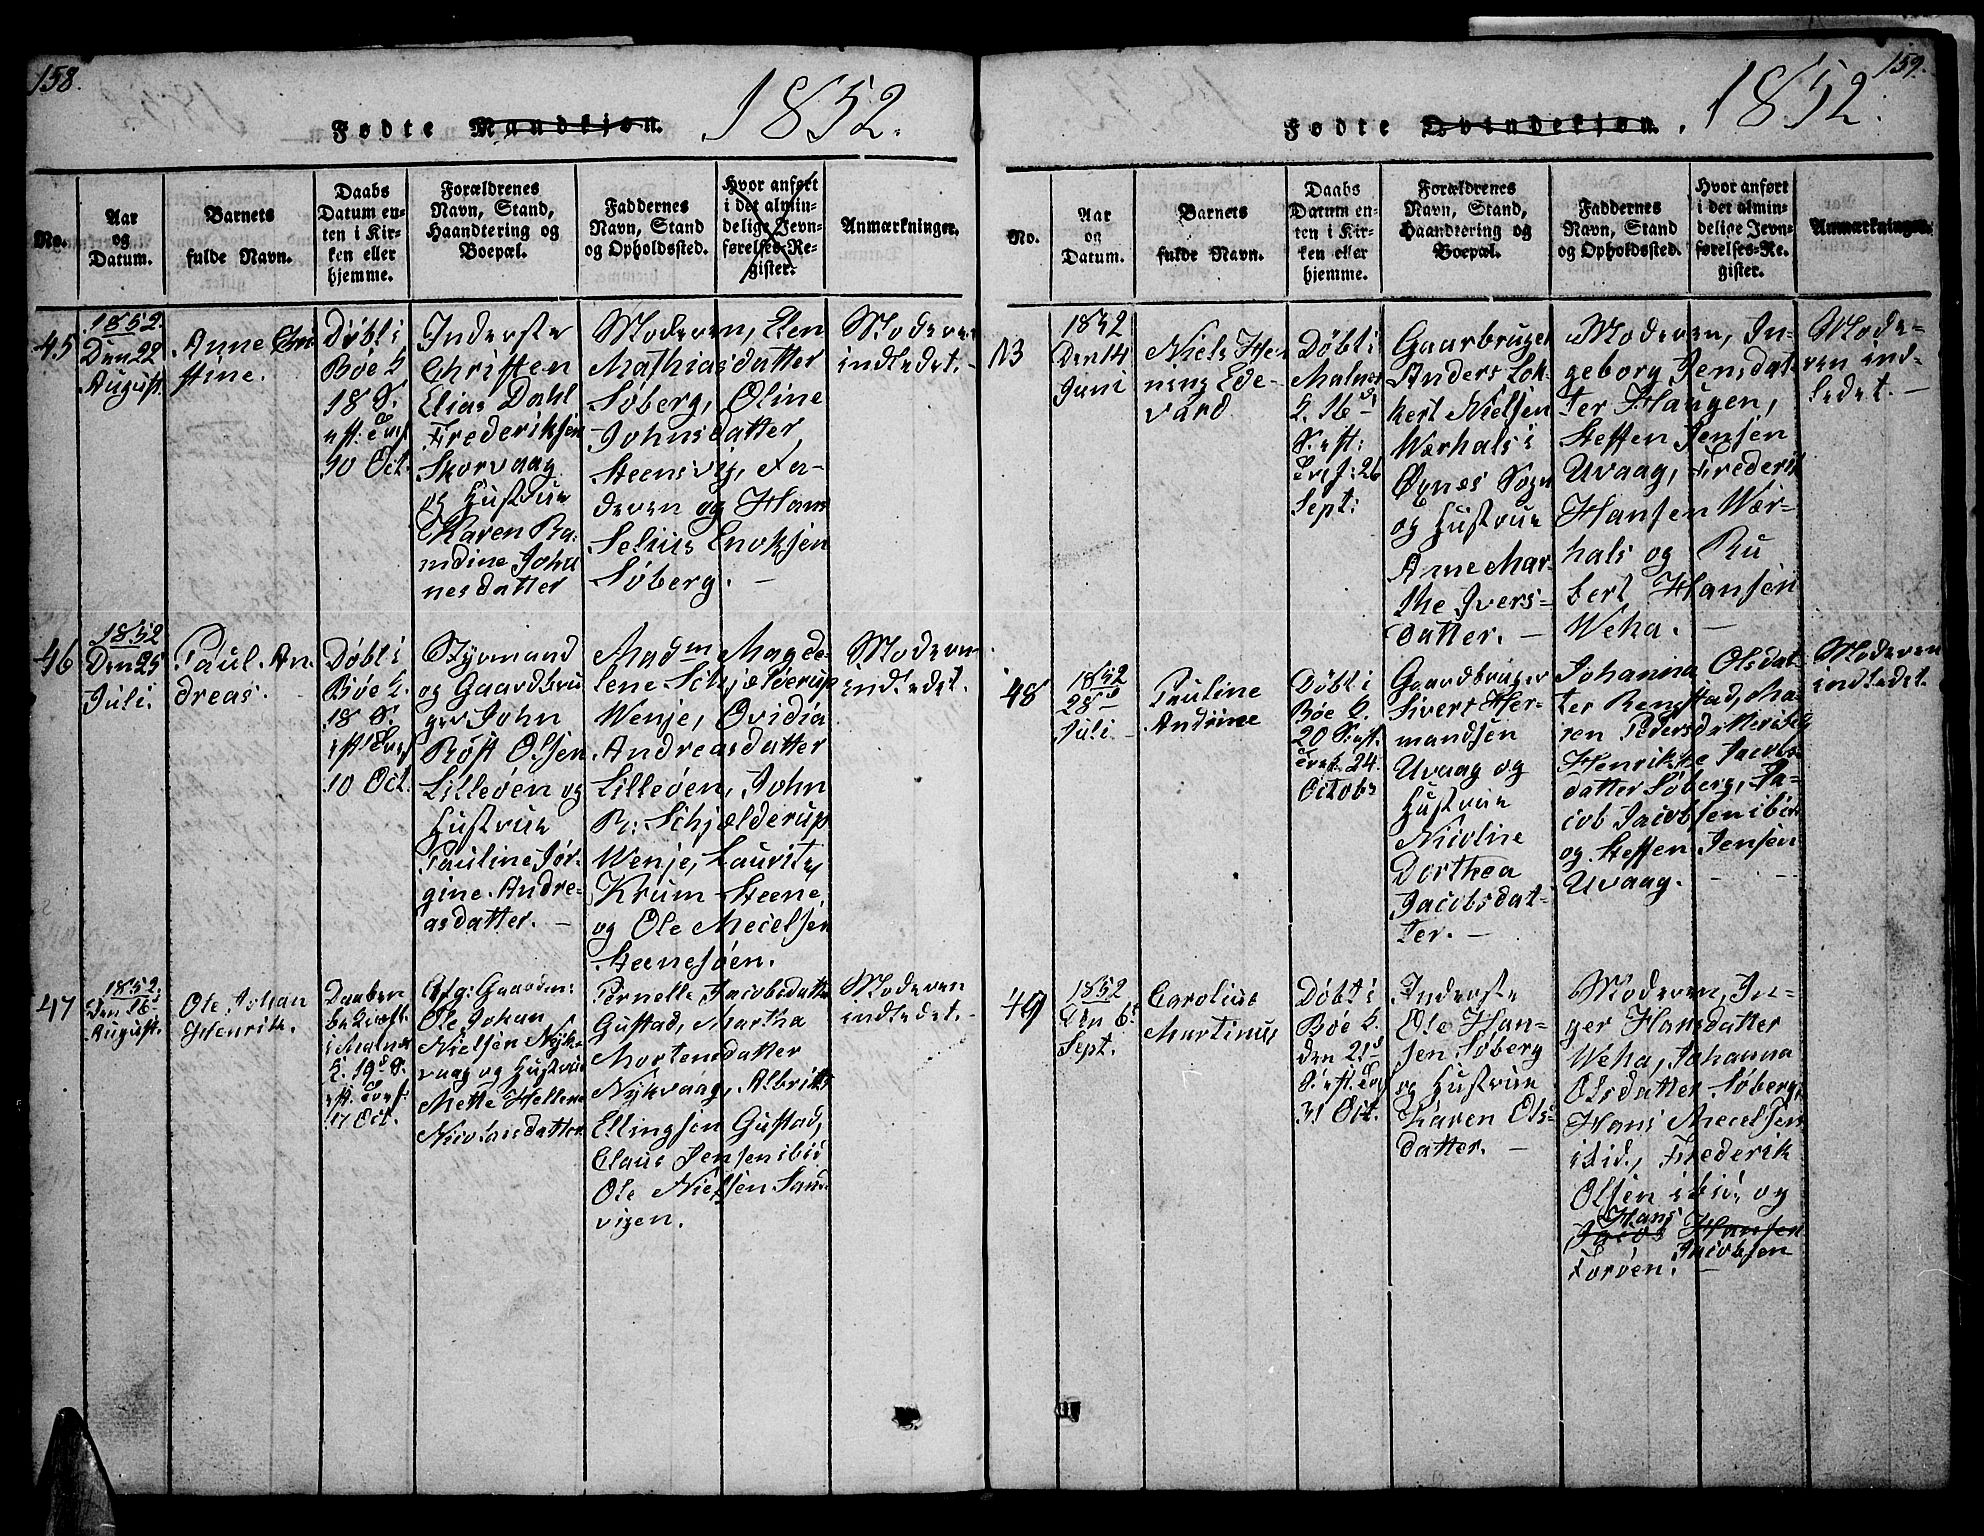 158.
Fødte Mandkjøn. 1852.
No.
Aar
og
Datum.
Barnets
fulde Navn.
Daabs
Datum en-
ten i Kir-
ken eller
hjemme.
Forældrenes
Navn, Stand,
Haandtering og
Boepæl.
Faddernes
Navn, Stand
og Opholdssted.
Hvor anført
i det almin-
delige Jevn-
førelses-Re-
gister.
Anmærkninger.
45
1852.
Den 22
August.
Anne Chri
stine.
Døbt i
Bøe K
18 S.
eft: Tref
10 Oct.
Inderste
Christen
Elias Dahl
Frederiksen
Skorvaag
og Hustrue
Karen Ra-
ndine Joha
nesdatter
Moderen, Elen
Mathiasdatter
Søberg, Oline
Johnsdatter
Steensvig, Fa-
deren og Hans
Selius Enoksen
Søberg. —
Moderen
indledet. -
46
1852
Den 25
Juli.
Paul An
dreas.
Døbt i
Bøe K.
18 S.
eft Tref
10 Oct.
Styrmand
og Gaardbru
ger John
Röst Olsen
Lilleøen og
Hustrue
Pauline Jør-
gine Andre-
asdatter. —
Madm Magde-
lene Schjelderup
Wenje, Ovidia
Andreasdatter
Lilleøen, John
R: Schjælderup
Wenje, Lauritz
Krum Steene,
og Ole Mecelsen
Steenesøen.
Moderen
indledet.
47
1852.
Den 16
August.
Ole Johan
Henrik.
Daaben
bekræft.
i Malnes
K. 19d S.
eft. Tref:
17 Oct.
Afg: Gaardm:
Ole Johan
Nielsen Nyk-
vaag og Hustrue
Mette Hellene
Nicolaisdatter
Pernelle Jacobsdatter
Gustad, Martha
Mortensdatter
Nykvaag, Albrikt
Ellingsen Gustad,
Claus Jensen ibid
Ole Nielsen Sand
vigen.
Moderen
indledet. -
159.
Fødte Qvindekjøn. 1852.
No.
Aar
og
Datum.
Barnets
fulde Navn.
Daabs
Datum en-
ten i Kir-
ken eller
hjemme.
Forældrenes
Navn, Stand,
Haandtering og
Boepæl.
Faddernes
Navn, Stand
og Opholdssted.
Hvor anført
i det almin-
delige Jevn-
førelses-Re-
gister.
Anmærkninger.
13
1852
Den 14
Juni
Niels Hen
ning Ede-
vard
Døbt i
Malnes
K. 16d
S. eft:
Tref: 26
Sept:
Gaarbruger
Anders Lok-
kert Nielsen
Wærhals i
Øxnes Sogn
og Hustrue
Ane Mar-
the Ivers-
datter. —
Moderen, In-
geborg Jensdat-
ter Haugen,
Steffen Jensen
Uvaag, Frederik
Hansen Wær-
hals og Ru
bert Hansen
Weha. —
Mode-
ren ind-
ledet. —
48
1852
28d
Juli
Pauline
Andrine
Døbt i
Bøe K.
20 S. eft.
Tref. 24
Octob:
Gaardbruger
Sivert Her-
mandsen
Uvaag og
Hustrue
Nicoline
Dorthea
Jacobsdat-
ter. —
Johanna Olsdat-
ter Ringstad, Ma-
ren Pedersdatter
Henrikke Jacobs
datter Søberg, Ja-
cob Jacobsen ibid
og Steffen Jensen
Uvaag. - -
Moderen
indledet.
49
1852
Den 6t
Sept.
Carolius
Martinus
Døbt i
Bøe K.
den 21d
S. eft. Tref
31 Oct.
Inderste
Ole Han-
sen Søberg
og Hustrue
Karen Ols-
datter. —
Moderen, In-
ger Hansdatter
Weha, Johanna
Olsdatter Søberg,
Hans Mecelsen
ibid., Frederik
Olsen ibid. og
Hans
Jacob Hansen
Jacobsen
Forøen. —